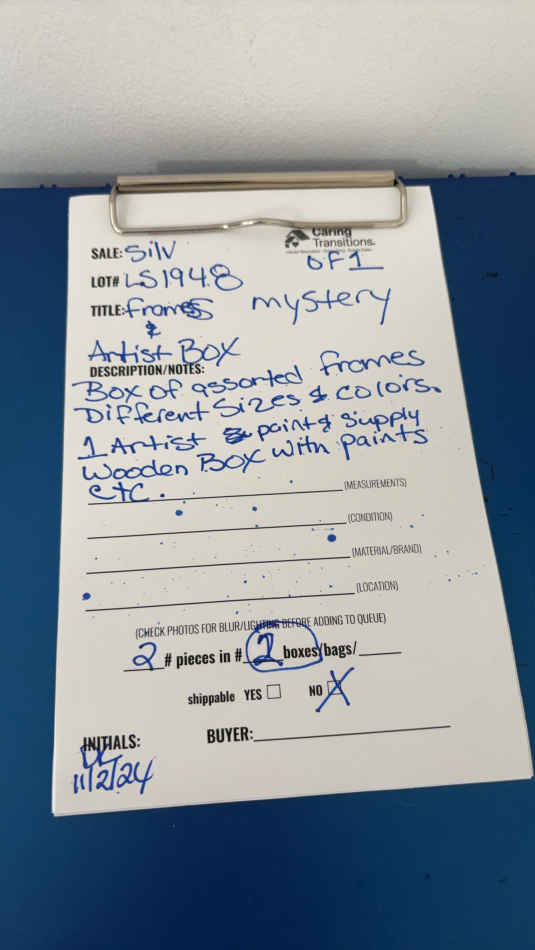 Caring
Transitions.
SALE: Silv
OF 1
LOT# LS1948
TITLE: frames mystery
&
Artist BOX
DESCRIPTION/NOTES:
Box of assorted frames
Different Sizes & colors.
1 Artist paint & Supply
Wooden BOX with paints
etc.
(MEASUREMENTS)
(CONDITION)
(MATERIAL/BRAND)
(LOCATION)
(CHECK PHOTOS FOR BLUR/LIGHTING BEFORE ADDING TO QUEUE)
2 # pieces in # 2 boxes/bags/
shippable YES NO X
INITIALS: BUYER:
11/2/24